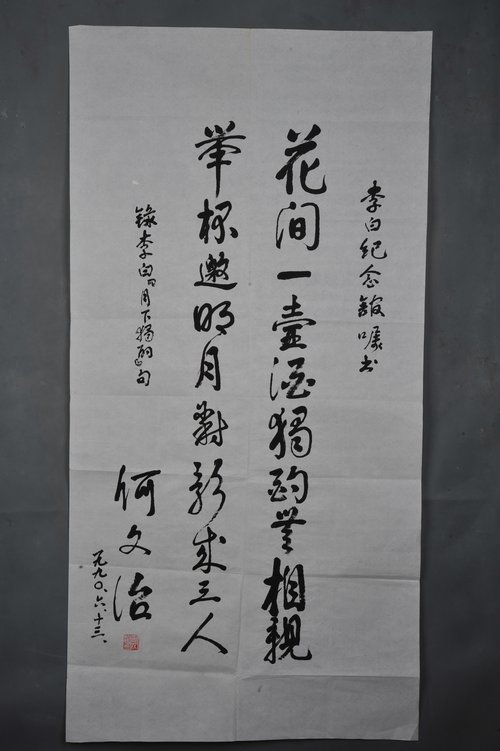 李白纪念馆嘱书
花间一壶酒独酌无相親
举杯邀明月對影成三人
錄李白《月下獨酌》句
何文治
一九九〇、六、十三、